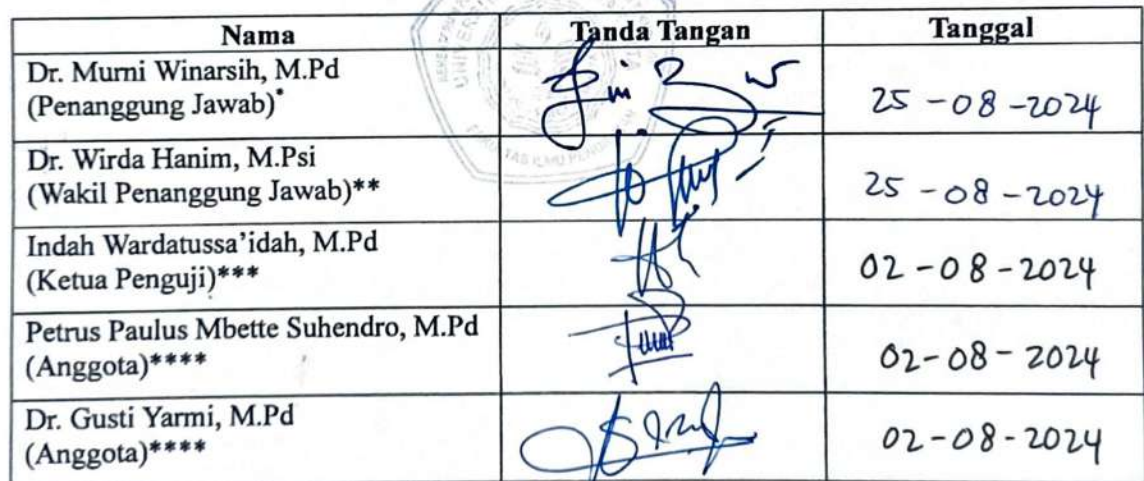 Nama Tanda Tangan Tanggal
Dr. Murni Winarsih, M.Pd
(Penanggung Jawab)* 25-08-2024
Dr. Wirda Hanim, M.Psi
(Wakil Penanggung Jawab)** 25-08-2024
Indah Wardatussa'idah, M.Pd
(Ketua Penguji)*** 02-08-2024
Petrus Paulus Mbette Suhendro, M.Pd
(Anggota)**** 02-08-2024
Dr. Gusti Yarmi, M.Pd
(Anggota)**** 02-08-2024